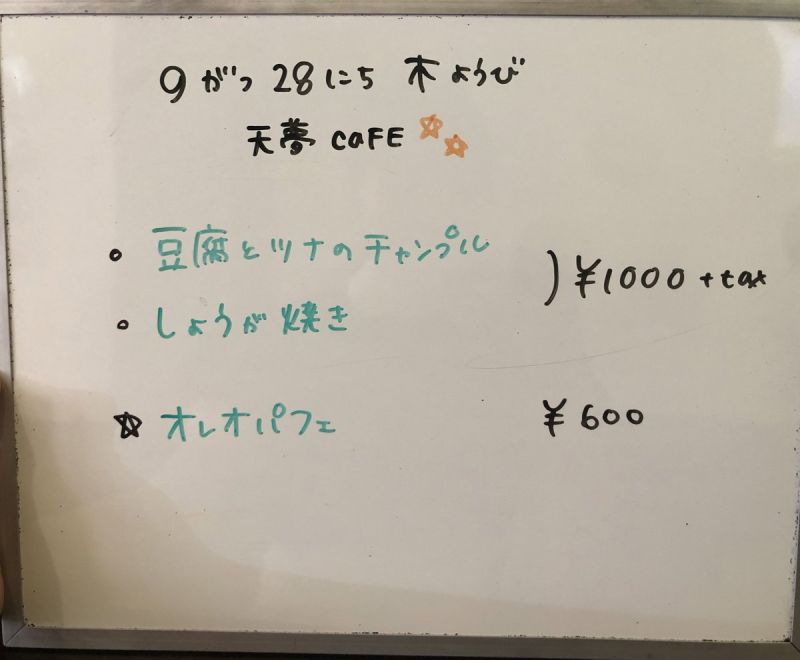 9がつ28にち 木ようび
天夢 caFE ☆☆
○ 豆腐とツナのチャンプル
○ しょうが焼き
) ¥1000+tax
☆ オレオパフェ ¥600